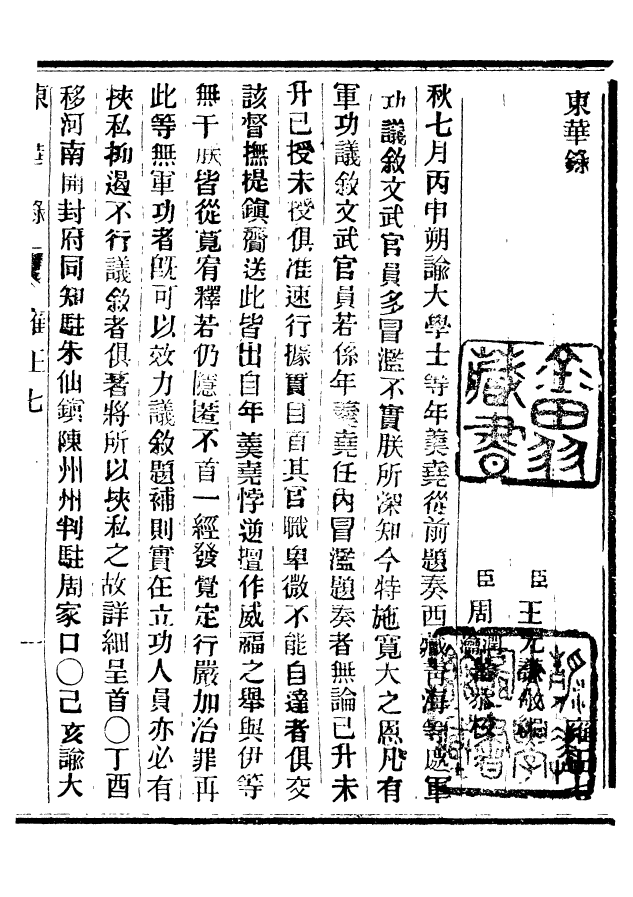 東華錄
雍正七
臣王先謙敬編
臣周潤蕃恭校
秋七月丙申朔諭大學士等年羹堯從前題奏西藏青海等處軍
功議敘文武官員多冒濫不實朕所深知今特施寬大之恩凡有
軍功議敘文武官員若係年羹堯任內冒濫題奏者無論已升未
升已授未授俱准速行據實自首其官職卑微不能自達者俱交
該督撫提鎮齎送此皆出自年羹堯悖逆擅作威福之舉與伊等
無干朕皆從寬宥釋若仍隱匿不首一經發覺定行嚴加治罪再
此等無軍功者旣可以效力議敘題補則實在立功人員亦必有
挾私抑遏不行議敘者俱著將所以挾私之故詳細呈首〇丁酉
移河南開封府同知駐朱仙鎭陳州州判駐周家口〇己亥諭大
東華錄
雍正七
一